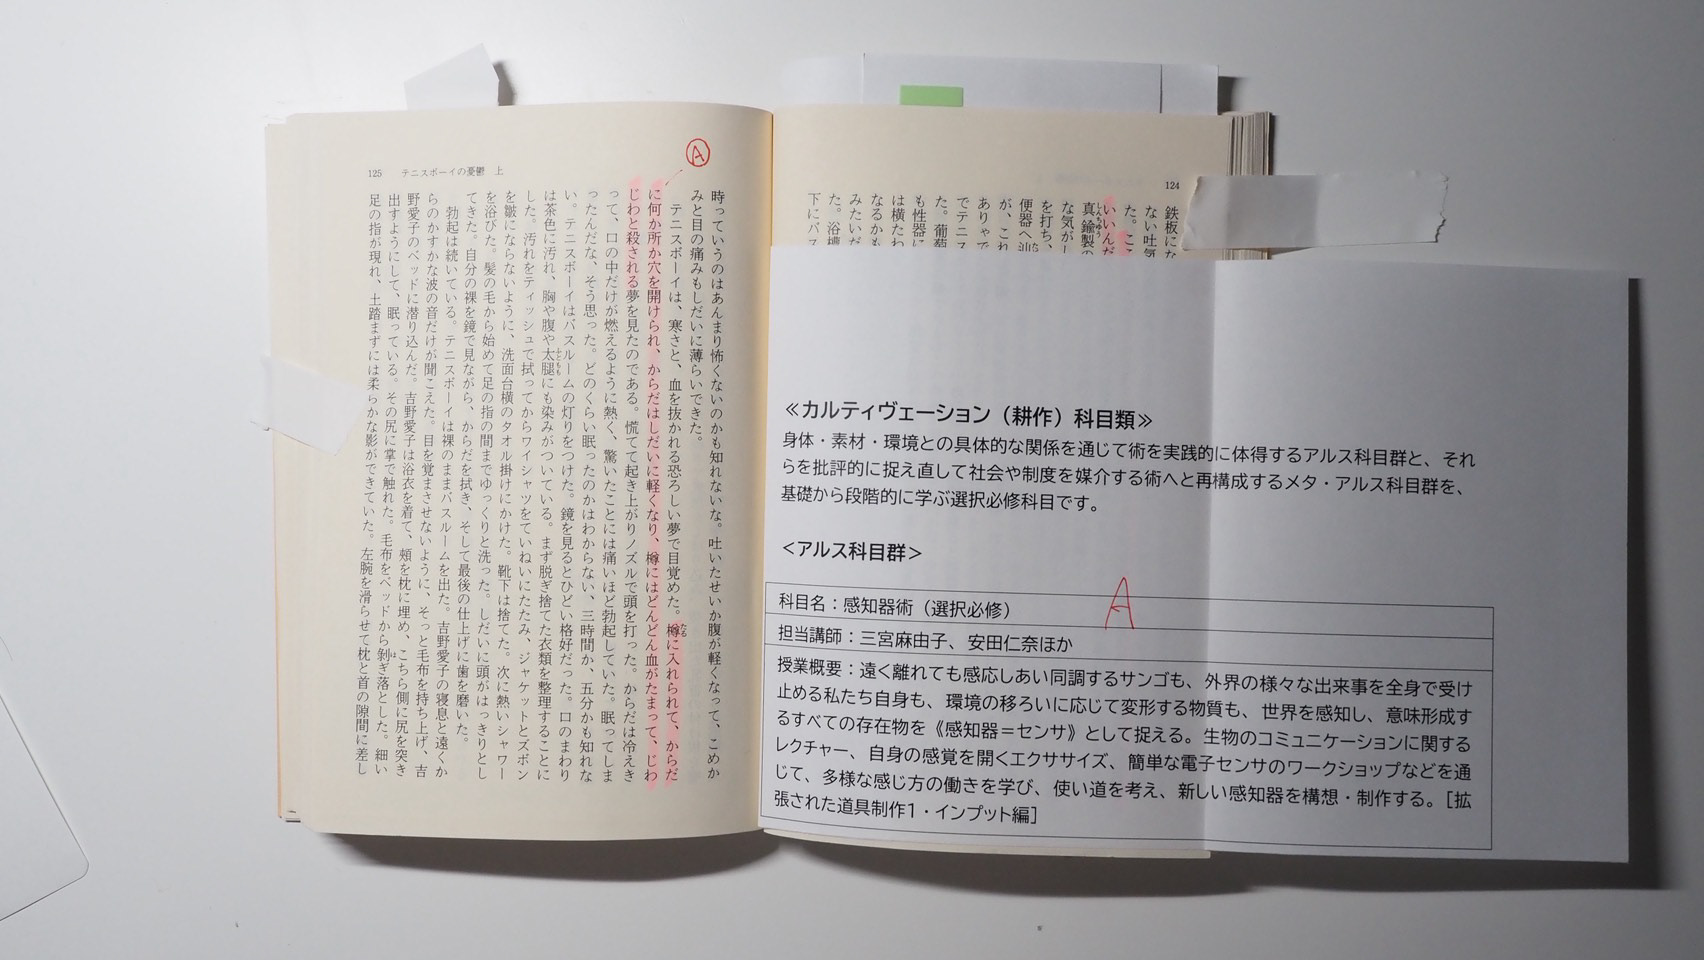 124
鉄板にな
ない吐気
た。ここ
いいんだ
真鍮製の
な気がし
を打ち、
便器へ
が、これ
ありゃで
でテニス
た。葡萄
も性器に
は横たわ
なるかも
みたいだ
た。浴槽
下にバス
125 テニスボーイの憂鬱 上
A
時っていうのはあんまり怖くないのかも知れないな。吐いたせいか腹が軽くなって、こめか
みと目の痛みもしだいに薄らいできた。
テニスボーイは、寒さと、血を抜かれる恐ろしい夢で目覚めた。樽に入れられて、からだ
に何か所か穴を開けられ、からだはしだいに軽くなり、樽にはどんどん血がたまって、じわ
じわと殺される夢を見たのである。慌てて起き上がりノズルで頭を打った。からだは冷えき
って、口の中だけが燃えるように熱く、驚いたことには痛いほど勃起していた。眠ってしま
ったんだな、そう思った。どのくらい眠ったのかはわからない、三時間か、五分かも知れな
い。テニスボーイはバスルームの灯りをつけた。鏡を見るとひどい格好だった。口のまわり
は茶色に汚れ、胸や腹や太腿にも染みがついている。まず脱ぎ捨てた衣類を整理することに
した。汚れをティッシュで拭ってからワイシャツをていねいにたたみ、ジャケットとズボン
を皺にならないように、洗面台横のタオル掛けにかけた。靴下は捨てた。次に熱いシャワー
を浴びた。髪の毛から始めて足の指の間までゆっくりと洗った。しだいに頭がはっきりとし
てきた。自分の裸を鏡で見ながら、からだを拭き、そして最後の仕上げに歯を磨いた。
勃起は続いている。テニスボーイは裸のままバスルームを出た。吉野愛子の寝息と遠くか
らのかすかな波の音だけが聞こえた。目を覚まさせないように、そっと毛布を持ち上げ、吉
野愛子のベッドに潜り込んだ。吉野愛子は浴衣を着て、頰を枕に埋め、こちら側に尻を突き
出すようにして、眠っている。その尻に掌で触れた。毛布をベッドから剝ぎ落とした。細い
足の指が現れ、土踏まずには柔らかな影ができていた。左腕を滑らせて枕と首の隙間に差し
≪カルティヴェーション（耕作）科目類≫
身体・素材・環境との具体的な関係を通じて術を実践的に体得するアルス科目群と、それ
らを批評的に捉え直して社会や制度を媒介する術へと再構成するメタ・アルス科目群を、
基礎から段階的に学ぶ選択必修科目です。
＜アルス科目群＞
A
科目名：感知器術（選択必修）
担当講師：三宮麻由子、安田仁奈ほか
授業概要：遠く離れても感応しあい同調するサンゴも、外界の様々な出来事を全身で受け
止める私たち自身も、環境の移ろいに応じて変形する物質も、世界を感知し、意味形成す
るすべての存在物を《感知器＝センサ》として捉える。生物のコミュニケーションに関する
レクチャー、自身の感覚を開くエクササイズ、簡単な電子センサのワークショップなどを通
じて、多様な感じ方の働きを学び、使い道を考え、新しい感知器を構想・制作する。［拡
張された道具制作1・インプット編］